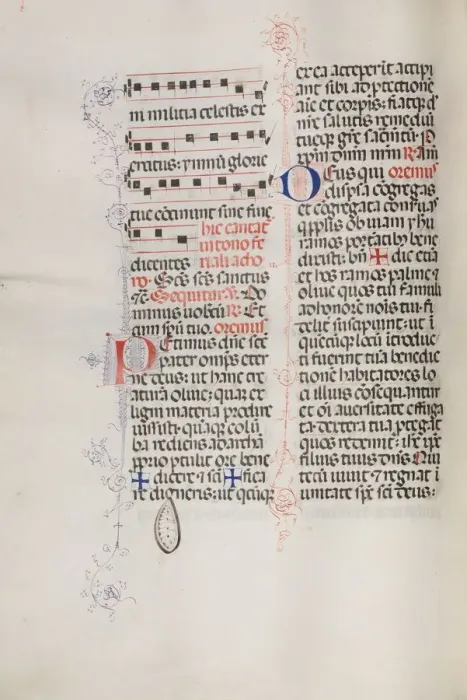 in militia celestis ex
ercitus: ymnũ glorie
tue cõcinunt sine fine
hic cantat
in tono fe
riali a cho
dicentes
ro. Scs̃ scs̃ sanctus
Sequitur. Do
minus uobcũ R. Et
cum spũ tuo. oremus
Petimus dñe scẽ
pater omps eter
ne deus: ut hanc cre
aturã oliue: quã ex
ligni materia prodire
iussisti. quãq̃ colũ
ba rediens ad archã
pprio ptulit ore bene
dicere ⁊ scĩ ficа
re digneris: ut quiq̃
ex ea acceperit accipi
ant sibi ad ptectionẽ
aĩe et corpis: fiatq̃ dñ
nr̃e salutis remediũ
tueq̃ grẽ sacrm̃tũ. P
xpm̃ dnm̃ nrm̃ R. Am̃
Deus qui oremus
dispsa cõgregas
et cõgregata conseruas
qui pplis obuiam yhu
ramos portãtibus bene
dixisti: bñ dic etiã
et hos ramos palme ⁊
oliue quos tui famuli
ad honorẽ nois tui. fi
delit suscipiunt: ut ĩ
quẽcũq̃ locũ introduc
ti fuerint tuã benedic
tionẽ habitatores lo
ci illius cõsequantur
et oĩ aduersitate effuga
ta. dextera tua ptegat
quos redemit: ihc xpc
filius tuus dñs. Qui
tecũ uiuit ⁊ regnat ĩ
unitate spc̃ scĩ deus: